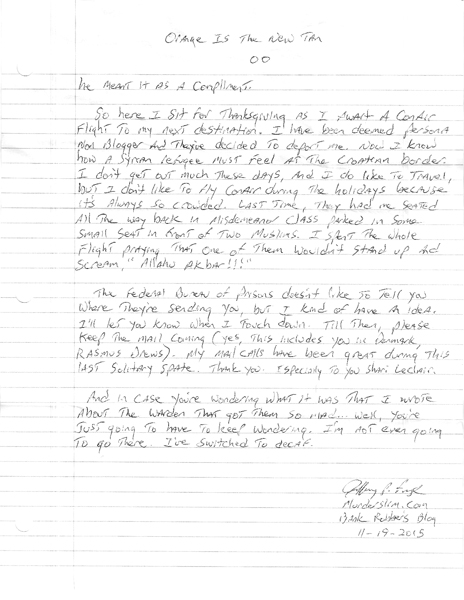 Orange Is The New Tan
OO
He meant it as a compliment.
So here I sit for Thanksgiving as I await a ConAir
Flight to my next destination. I have been deemed persona
Non Blogger and they've decided to deport me. Now I know
how a Syrian refugee must feel at the Croatian border.
I don't get out much these days, and I do like to travel,
but I don't like to fly ConAir during the holidays because
it's always so crowded. Last time, they had me seated
all the way back in Misdemeanor Class parked in some
small seat in front of two Muslims. I spent the whole
flight praying that one of them wouldn't stand up and
scream, "Allahu Akbar!!!"
The Federal Bureau of Prisons doesn't like to tell you
where they're sending you, but I kind of have an idea.
I'll let you know when I touch down. Till then, please
keep the mail coming (yes, this includes you in Denmark,
Rasmus Drews). My mail calls have been great during this
last solitary spate. Thank you. Especially to you Shari LeClair.
And in case you're wondering what it was that I wrote
about the warden that got them so mad... well, you're
just going to have to keep wondering. I'm not even going
to go there. I've switched to decaf.
Murderslim.com
Bank Robber's Blog
11-19-2015